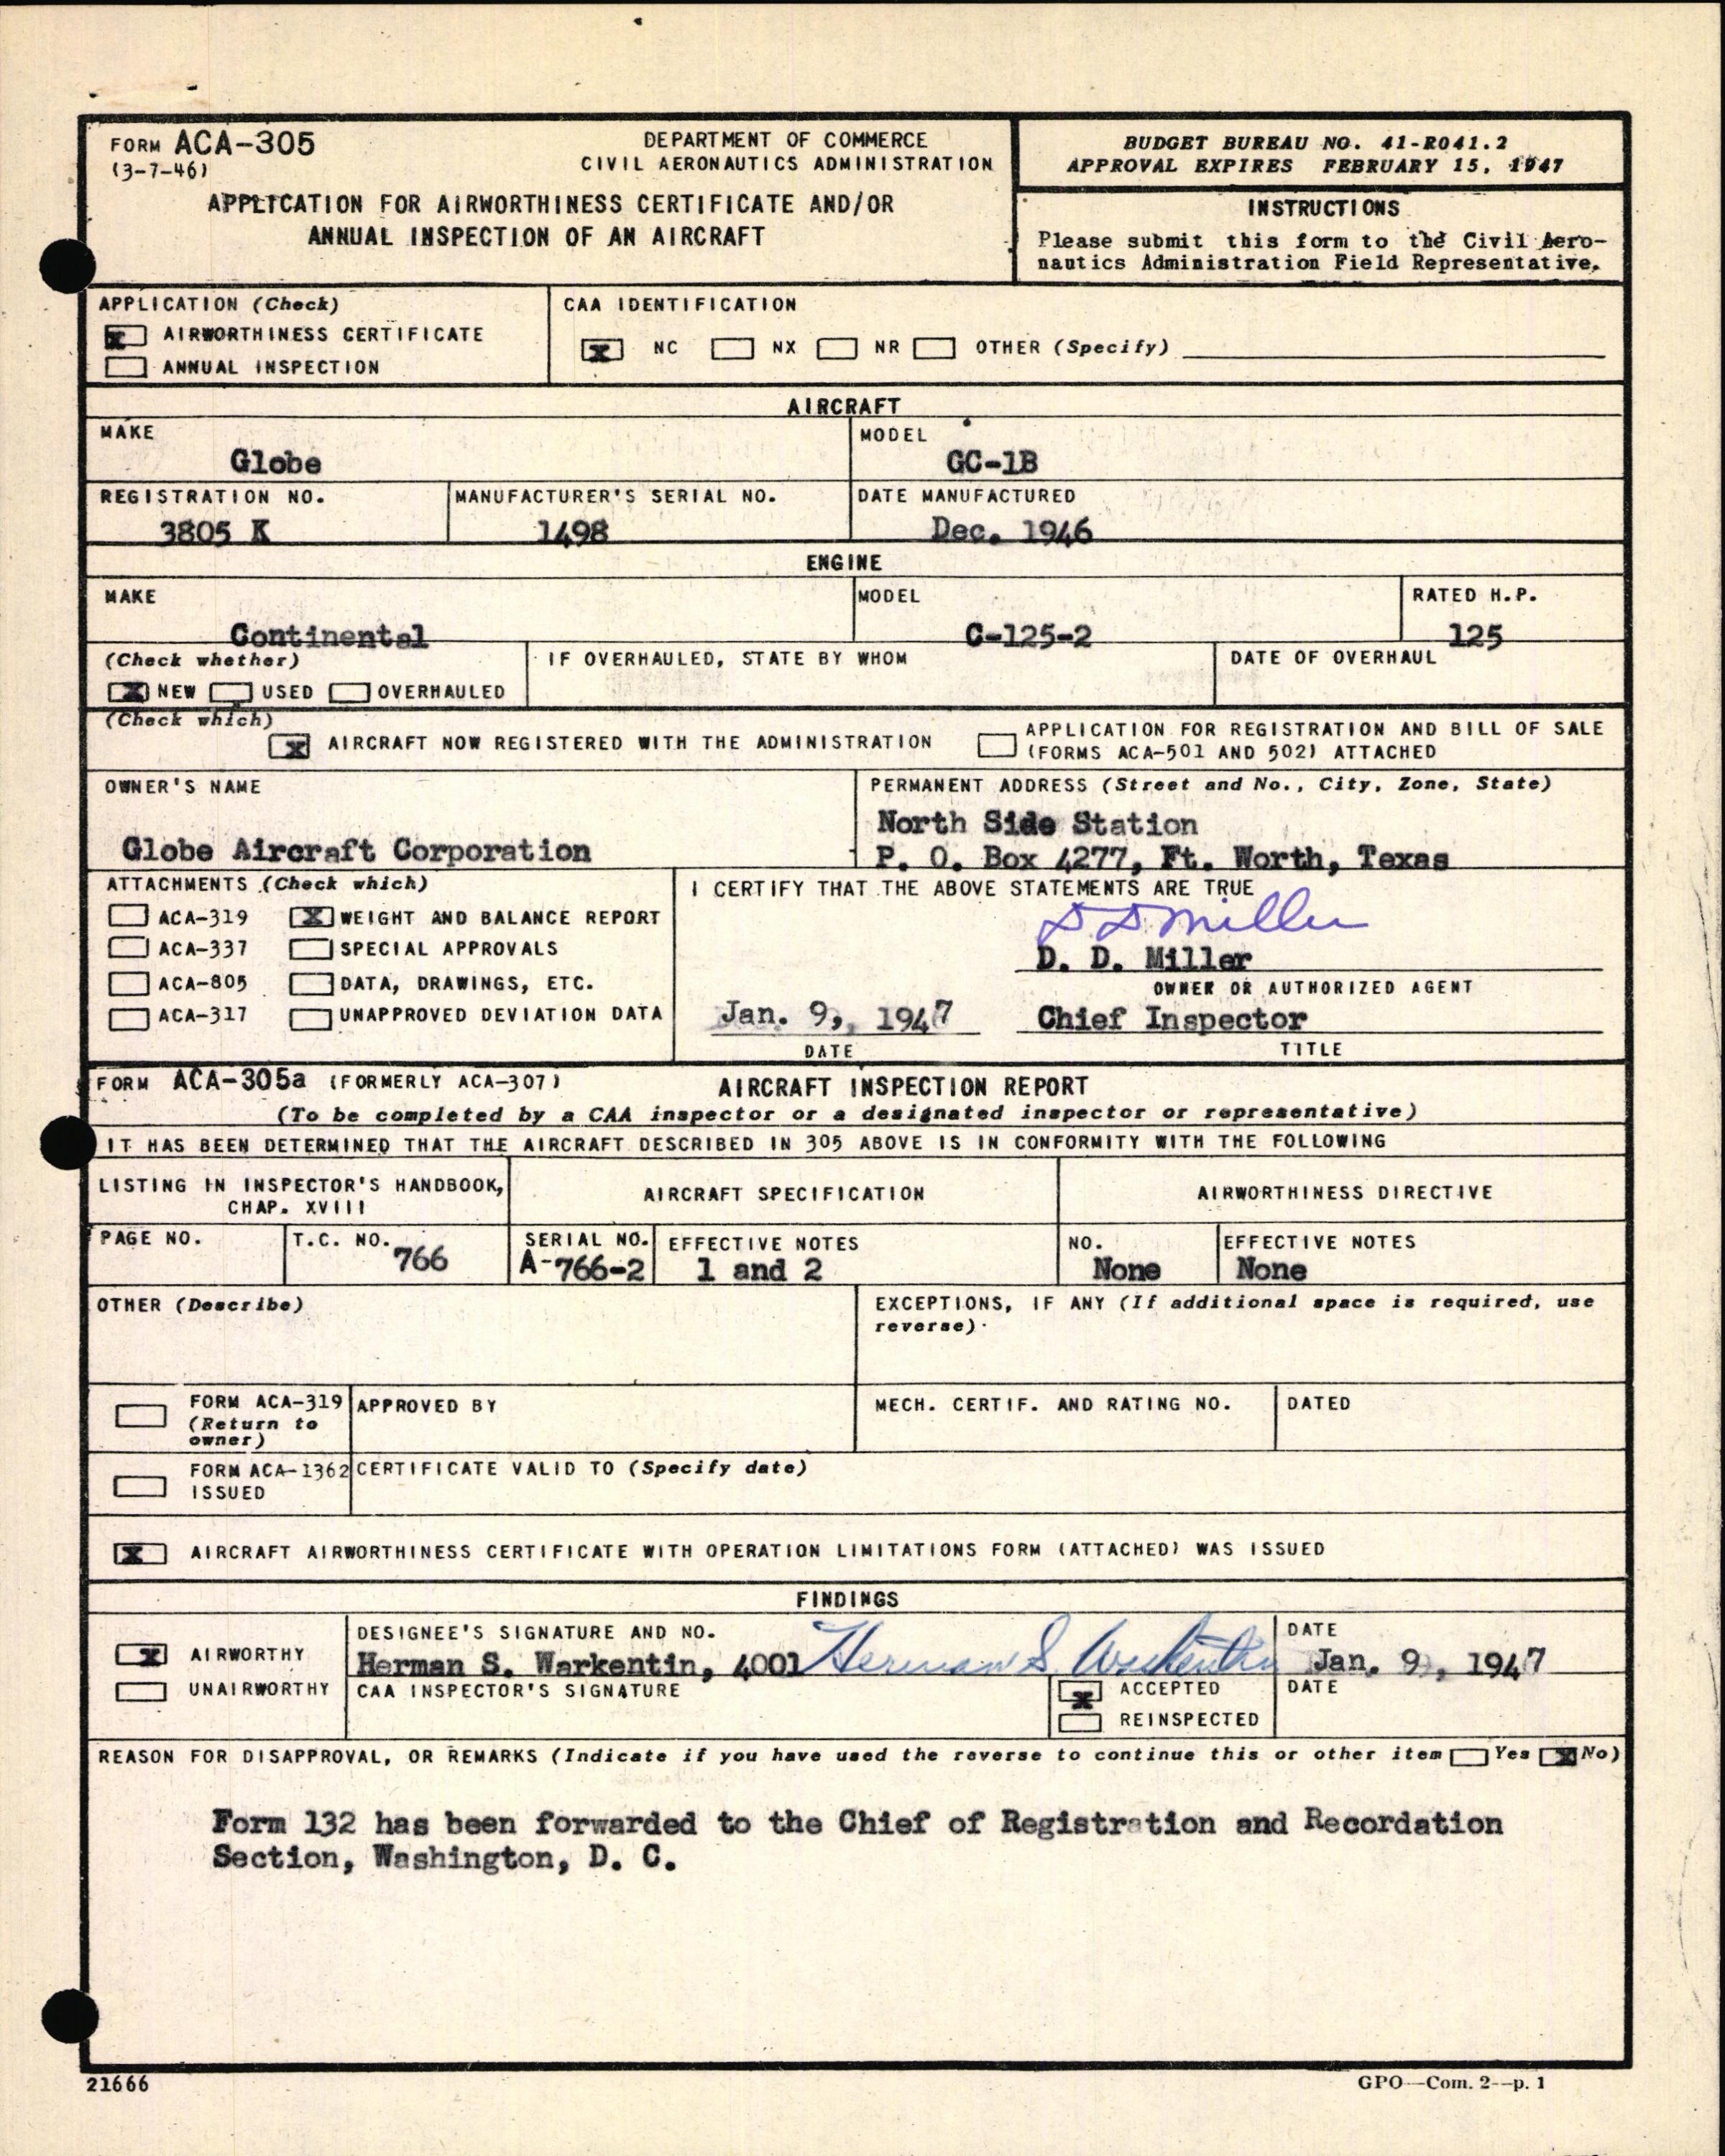 FORM ACA-305
(3-7-46)
DEPARTMENT OF COMMERCE
CIVIL AERONAUTICS ADMINISTRATION
APPLICATION FOR AIRWORTHINESS CERTIFICATE AND/OR
ANNUAL INSPECTION OF AN AIRCRAFT
BUDGET BUREAU NO. 41-R041.2
APPROVAL EXPIRES FEBRUARY 15, 1947
INSTRUCTIONS
Please submit this form to the Civil Aero-
nautics Administration Field Representative.
APPLICATION (Check)
X AIRWORTHINESS CERTIFICATE
ANNUAL INSPECTION
CAA IDENTIFICATION
X NC NX NR OTHER (Specify)
AIRCRAFT
MAKE
Globe
MODEL
GC-1B
REGISTRATION NO.
3805 K
MANUFACTURER'S SERIAL NO.
1498
DATE MANUFACTURED
Dec. 1946
ENGINE
MAKE
Continental
MODEL
C-125-2
RATED H.P.
125
(Check whether)
X NEW USED OVERHAULED
IF OVERHAULED, STATE BY WHOM
DATE OF OVERHAUL
(Check which)
X AIRCRAFT NOW REGISTERED WITH THE ADMINISTRATION
APPLICATION FOR REGISTRATION AND BILL OF SALE
(FORMS ACA-501 AND 502) ATTACHED
OWNER'S NAME
Globe Aircraft Corporation
PERMANENT ADDRESS (Street and No., City, Zone, State)
North Side Station
P. O. Box 4277, Ft. Worth, Texas
ATTACHMENTS (Check which)
ACA-319 X WEIGHT AND BALANCE REPORT
ACA-337 SPECIAL APPROVALS
ACA-805 DATA, DRAWINGS, ETC.
ACA-317 UNAPPROVED DEVIATION DATA
I CERTIFY THAT THE ABOVE STATEMENTS ARE TRUE
D D Miller
D. D. Miller
OWNER OR AUTHORIZED AGENT
Jan. 9, 1947 Chief Inspector
DATE TITLE
FORM ACA-305a (FORMERLY ACA-307) AIRCRAFT INSPECTION REPORT
(To be completed by a CAA inspector or a designated inspector or representative)
IT HAS BEEN DETERMINED THAT THE AIRCRAFT DESCRIBED IN 305 ABOVE IS IN CONFORMITY WITH THE FOLLOWING
LISTING IN INSPECTOR'S HANDBOOK,
CHAP. XVIII
AIRCRAFT SPECIFICATION
AIRWORTHINESS DIRECTIVE
PAGE NO.
T.C. NO.
766
SERIAL NO.
A-766-2
EFFECTIVE NOTES
1 and 2
NO.
None
EFFECTIVE NOTES
None
OTHER (Describe)
EXCEPTIONS, IF ANY (If additional space is required, use
reverse).
FORM ACA-319
(Return to
owner)
APPROVED BY
MECH. CERTIF. AND RATING NO.
DATED
FORM ACA-1362
ISSUED
CERTIFICATE VALID TO (Specify date)
X AIRCRAFT AIRWORTHINESS CERTIFICATE WITH OPERATION LIMITATIONS FORM (ATTACHED) WAS ISSUED
FINDINGS
X AIRWORTHY
UNAIRWORTHY
DESIGNEE'S SIGNATURE AND NO.
Herman S. Warkentin, 4001 Herman S. Warkentin
DATE
Jan. 9, 1947
CAA INSPECTOR'S SIGNATURE
X ACCEPTED
REINSPECTED
DATE
REASON FOR DISAPPROVAL, OR REMARKS (Indicate if you have used the reverse to continue this or other item Yes X No)
Form 132 has been forwarded to the Chief of Registration and Recordation
Section, Washington, D. C.
21666
GPO—Com. 2--p. 1